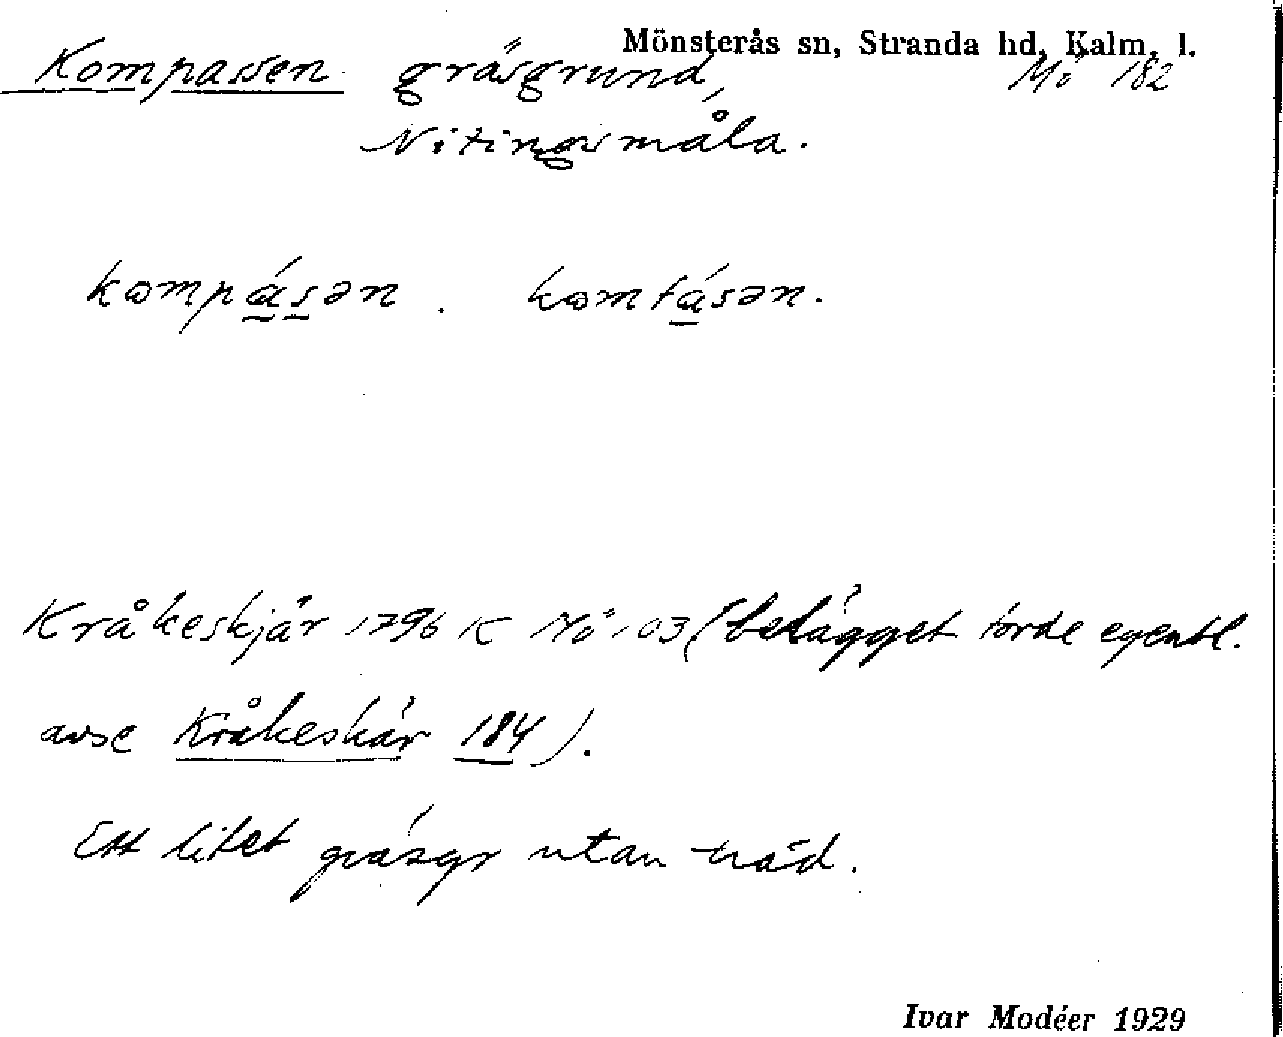 Mönsterås sn, Stranda hd, Kalm. l.
Kompassen gräsgrund, Mö 182
Nitingsmåla.
kompásən. komtásən.
Kråkeskjär 1796 K Mö 103 (belägget torde egentl.
avse Kråkeskär 184).
Ett litet gräsgr utan träd.
Ivar Modéer 1929